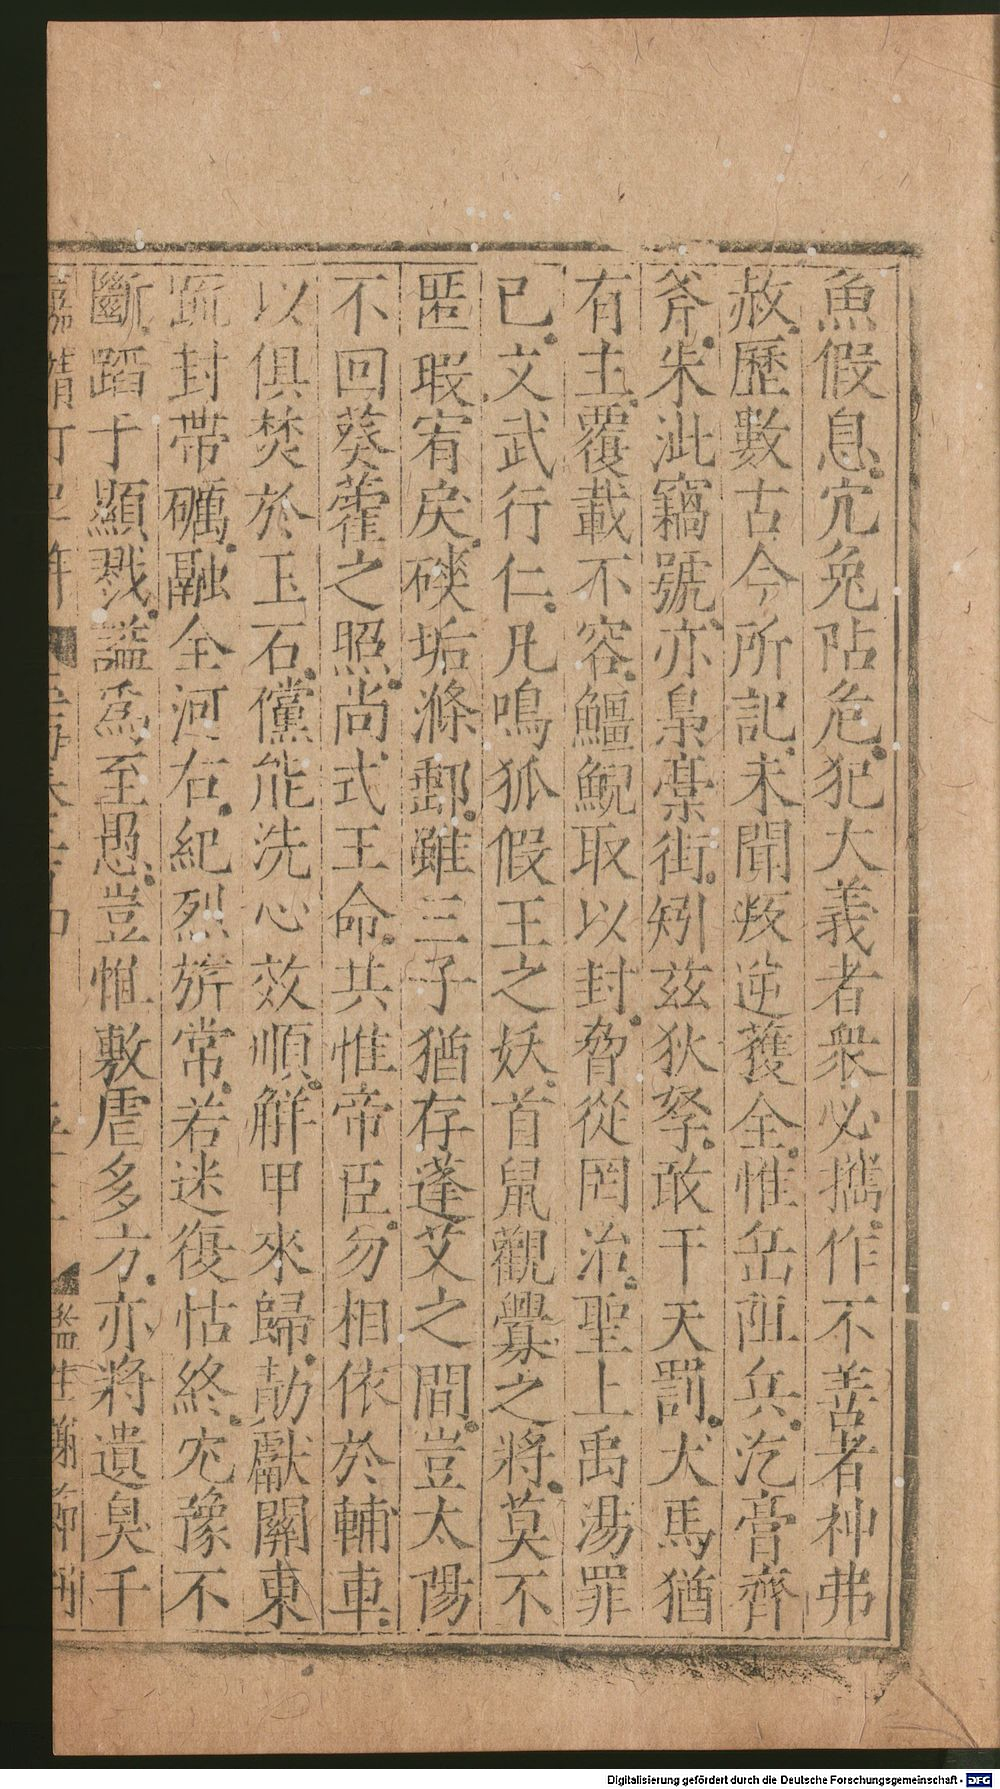 魚假息。宂兔阽危。犯大義者衆必攜。作不善者神弗
赦。歷數古今所記。未聞叛逆獲全。惟岳阻兵。汔膏齊
斧。朱泚竊號。亦梟藁街。矧兹狄孥。敢干天罰。犬馬猶
有主。覆載不容。鱷鯢取以封。脅從罔治。聖上禹湯罪
已。文武行仁。凡鳴狐假王之妖。首鼠觀釁之將。莫不
匿瑕宥戾。磢垢滌郵。雖三子猶存蓬艾之間。豈太陽
不回葵藿之照。尚式王命。共惟帝臣。勿相依於輔車。
以俱焚於玉石。儻能洗心效順。觧甲來歸。勣獻關東
疏封帶礪。融全河右。紀烈旂常。若迷復怙終。宂豫不
斷。蹈于顯戮。謚爲至愚。豈惟敷虐多方。亦將遺臭千
Digitalisierung gefördert durch die Deutsche Forschungsgemeinschaft - DFG